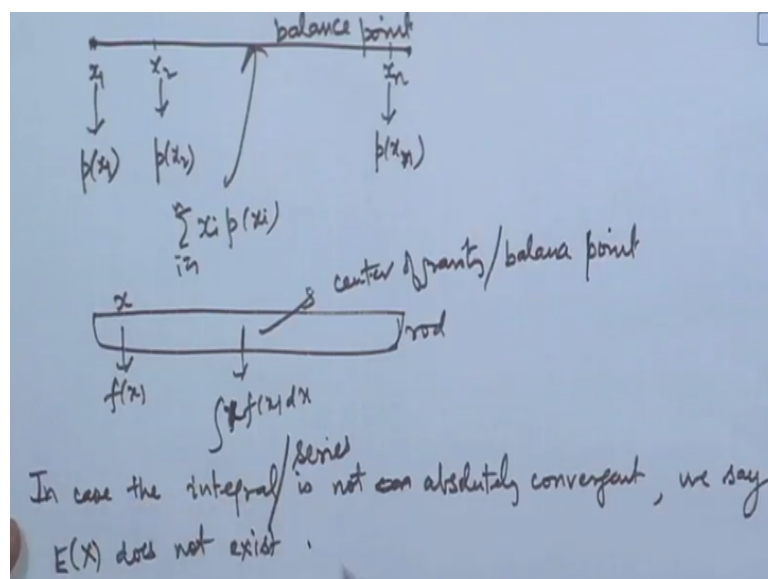 balance point
x₁ x₂ xₙ
p(x₁) p(x₂) p(xₙ)
∑ xᵢ p(xᵢ)
i=1
center of gravity/balance point
x
rod
f(x)
∫x f(x) dx
In case the integral/series is not absolutely convergent, we say
E(X) does not exist.